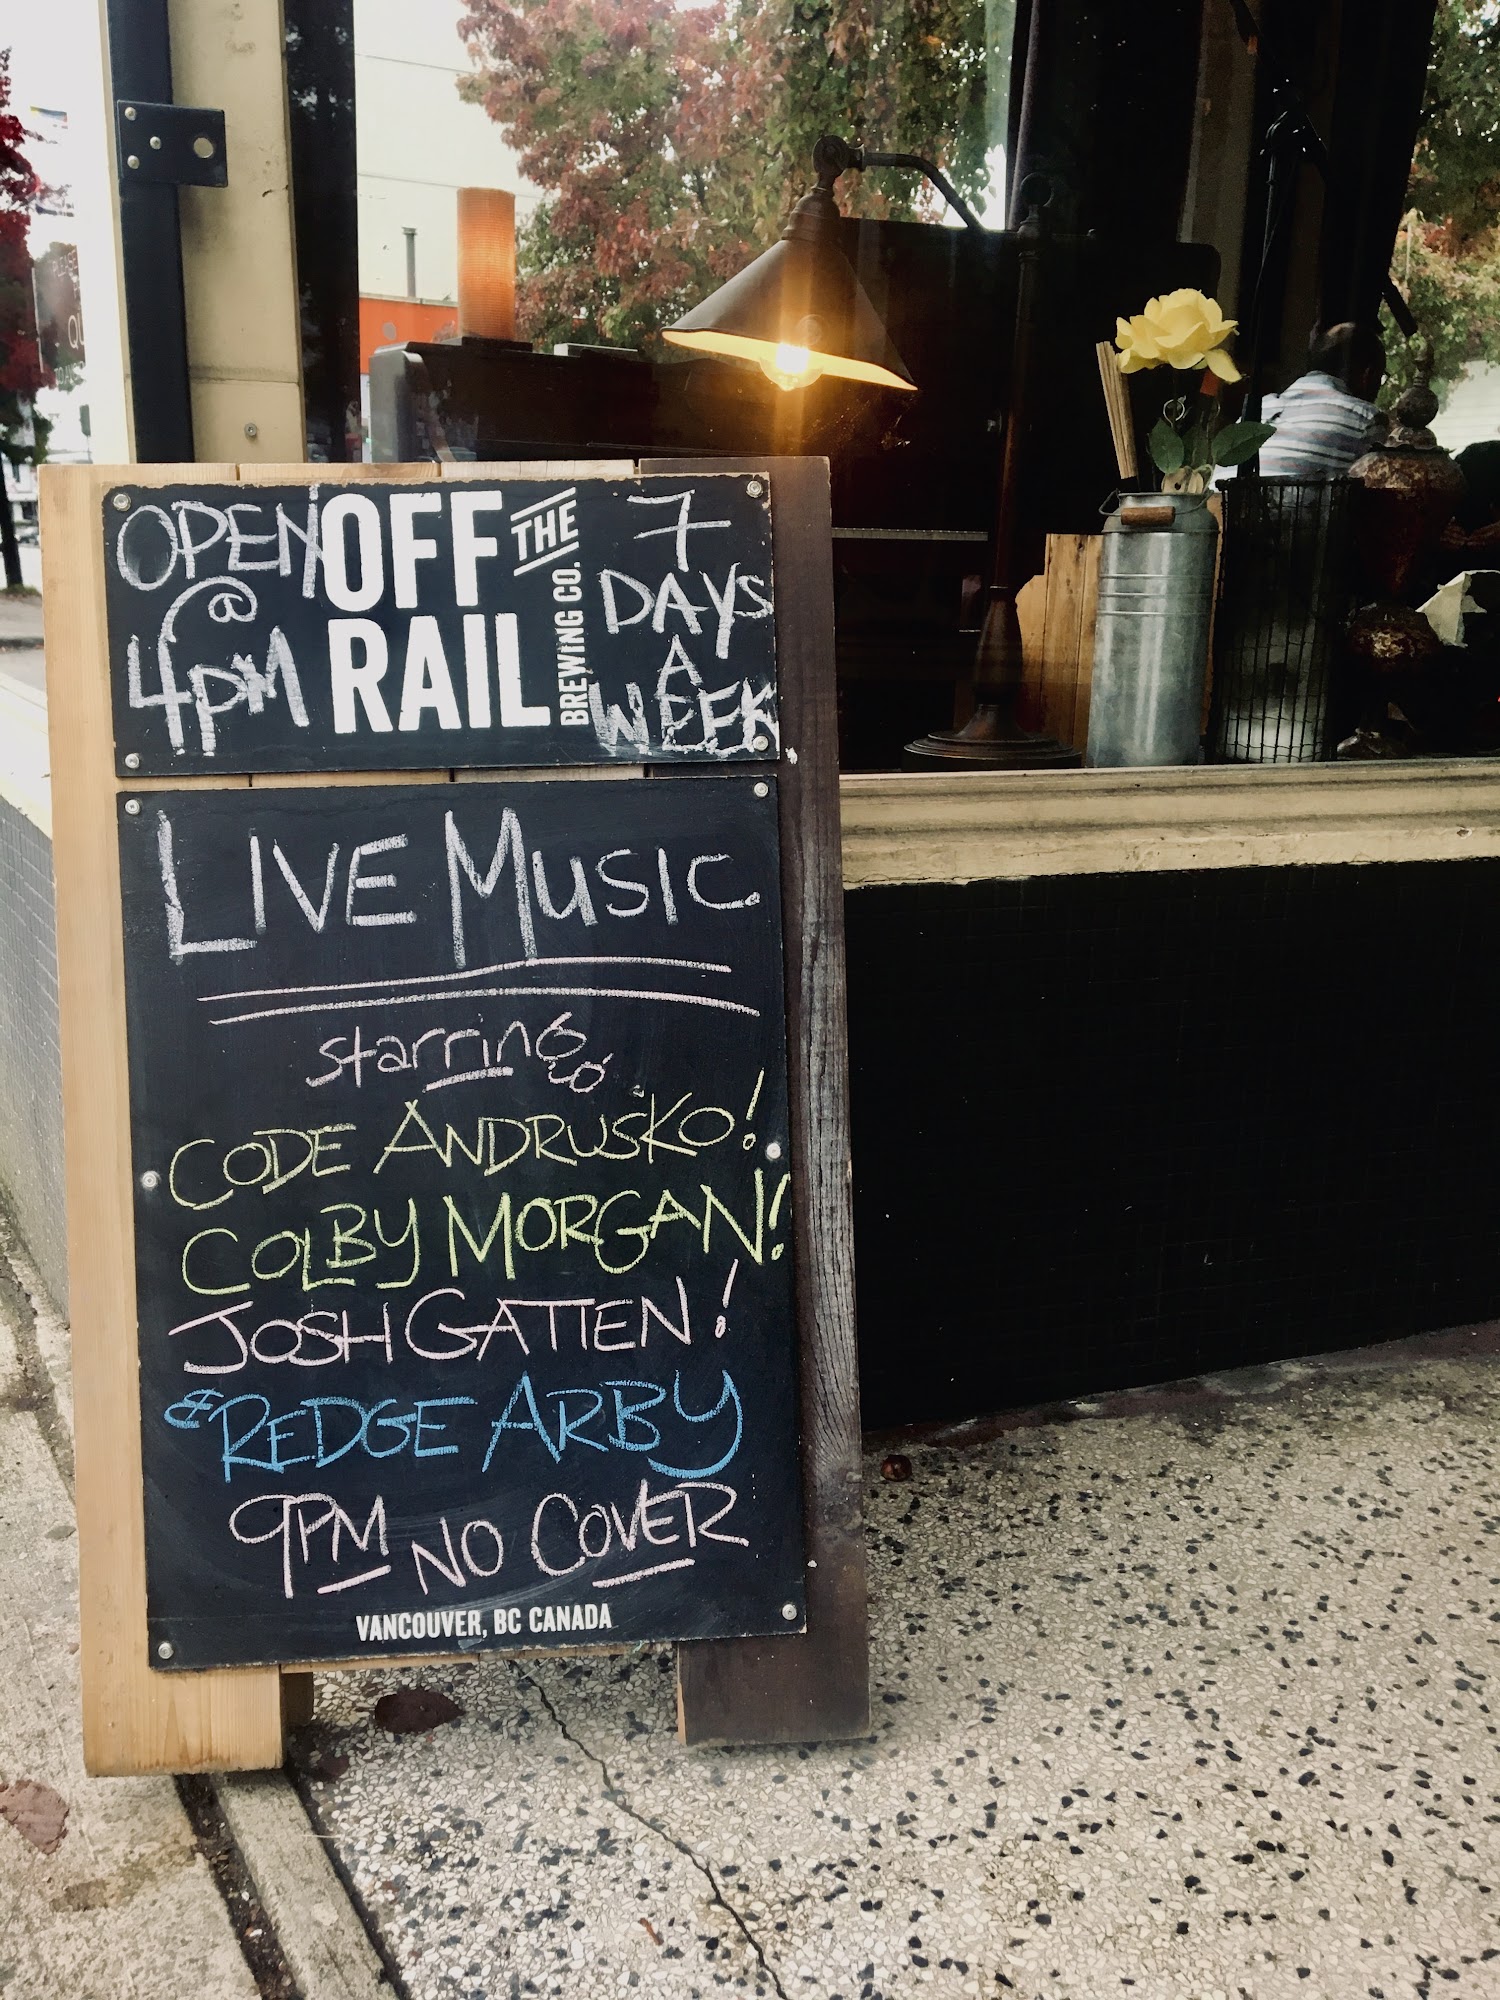 OPEN
@
4PM
OFF
THE
RAIL
BREWING CO.
7
DAYS
A
WEEK
LIVE MUSIC
starring
CODE ANDRUSKO!
COLBY MORGAN!
JOSH GATIEN!
& REDGE ARBY
9PM NO COVER
VANCOUVER, BC CANADA